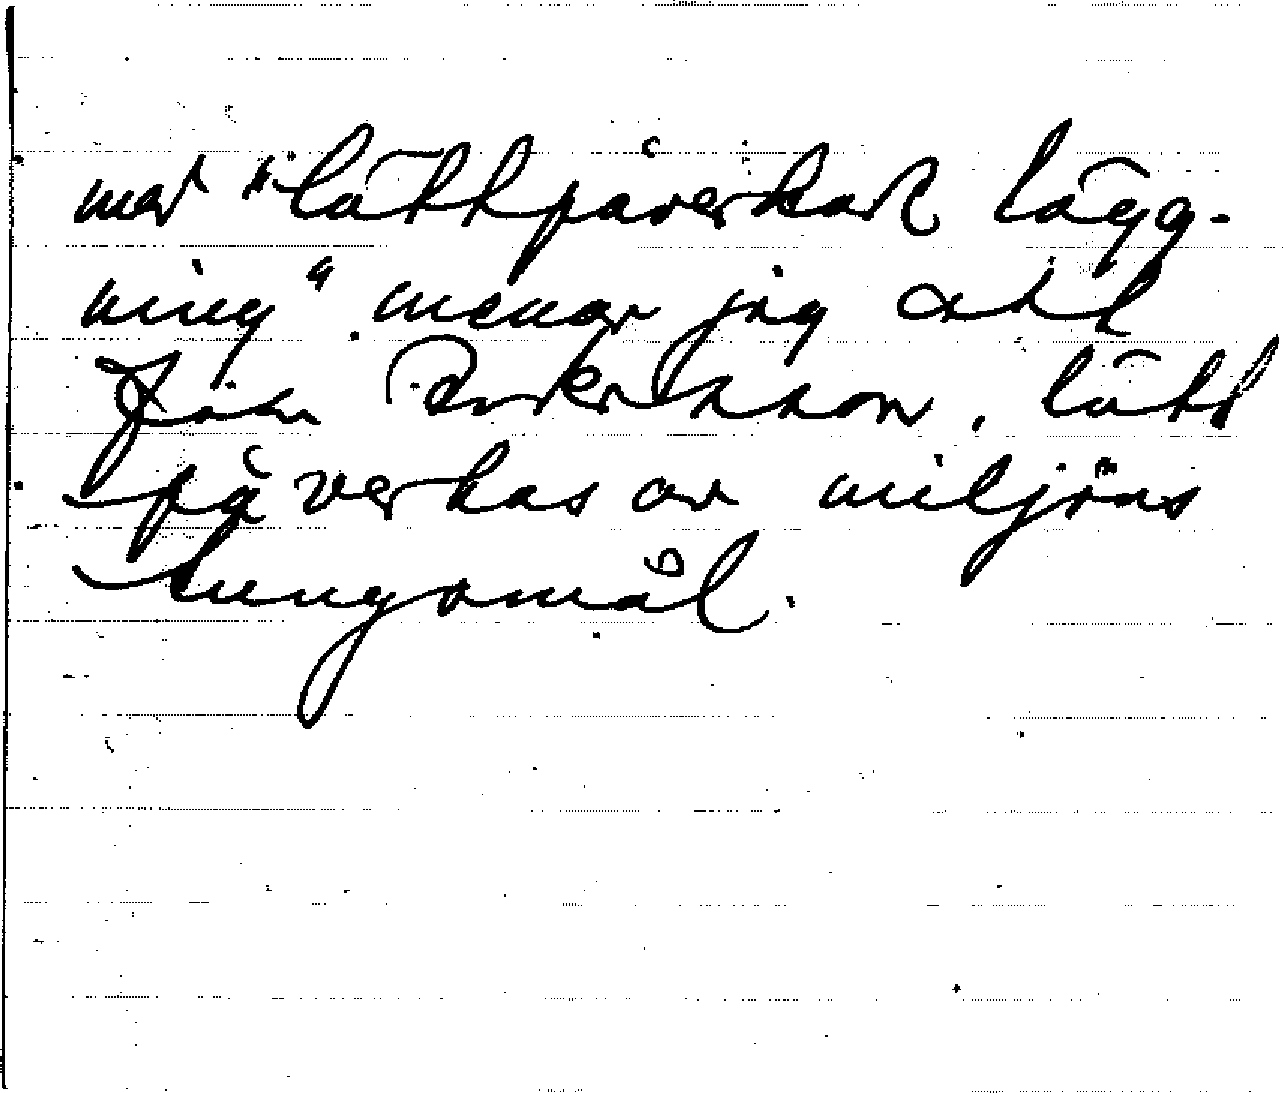 med "lättpåverkad lägg-
ning" menar jag att
från Eriksson, lätt
påverkas av miljöns
tungomål.